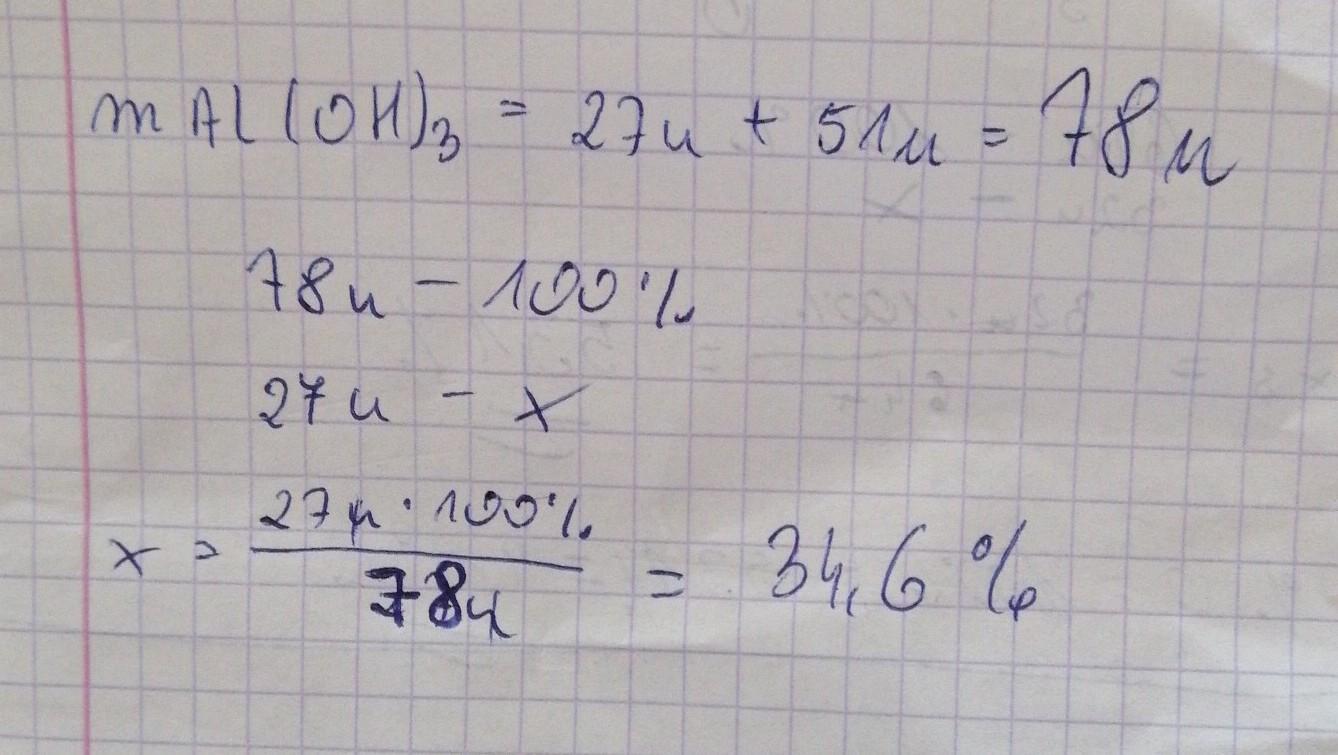 m Al(OH)₃ = 27u + 51u = 78u
78u - 100%
27u - x
x = 27u · 100% / 78u = 34,6%